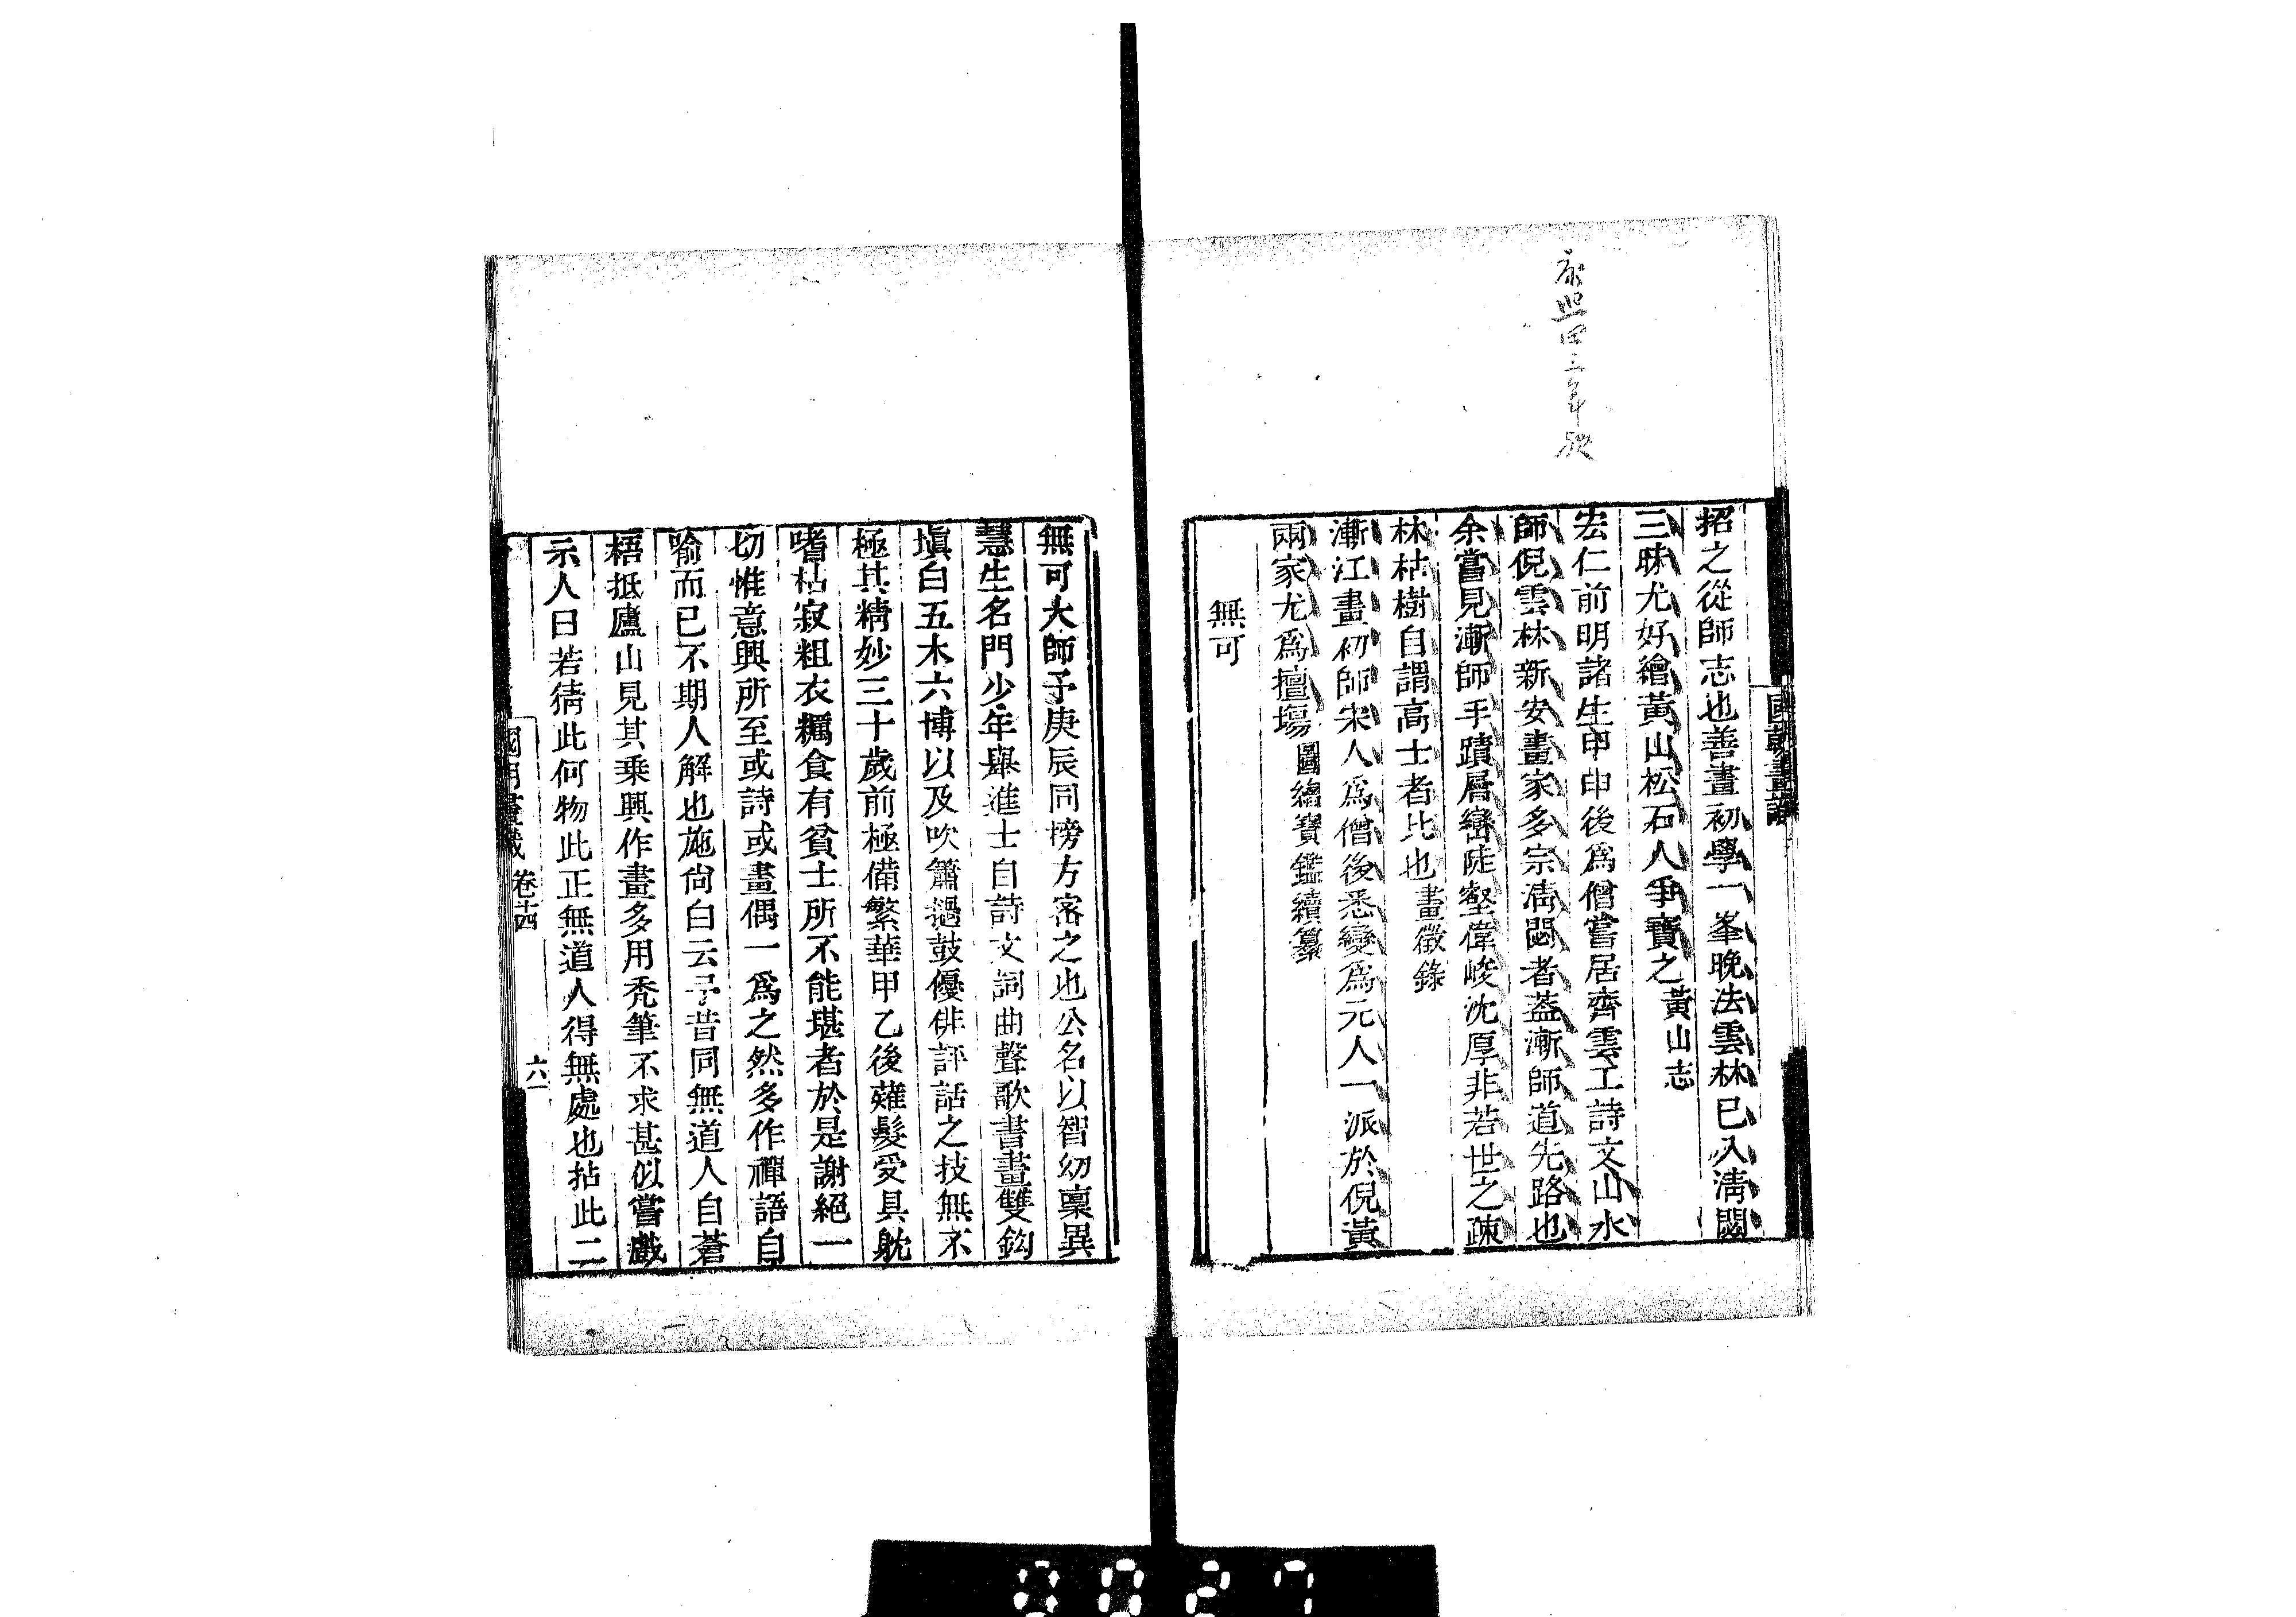 國朝畫識
招之從師志也善畫初學一峯晚法雲林已入淸閟
三昧尤好繪黃山松石人爭寶之黃山志
宏仁前明諸生甲申後爲僧嘗居齊雲工詩文山水
師倪雲林新安畫家多宗淸閟者葢漸師道先路也
余嘗見漸師手蹟層巒陡壑偉峻沈厚非若世之疎
林枯樹自謂高士者比也畫徵錄
漸江畫初師宋人爲僧後悉變爲元人一派於倪黃
兩家尤爲擅塲圖繪寶鑑續纂
無可
無可大師予庚辰同榜方密之也公名以智幼稟異
慧生名門少年舉進士自詩文詞曲聲歌書畫雙鈎
塡白五木六博以及吹簫撾鼓優俳評話之技無不
極其精妙三十歲前極備繁華甲乙後薙髮受具躭
嗜枯寂粗衣糲食有貧士所不能堪者於是謝絕一
切惟意興所至或詩或畫偶一爲之然多作禪語自
喻而已不期人解也施尙白云予昔同無道人自蒼
梧抵廬山見其乘興作畫多用禿筆不求甚似嘗戲
示人曰若猜此何物此正無道人得無處也拈此二
國朝畫識 卷十四 六